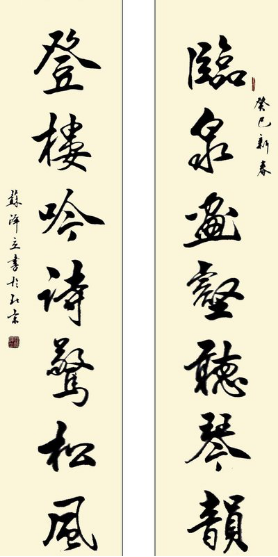 癸巳新春
臨泉畫壑聽琴韻
登樓吟詩驚松風
蘇澤立書於北京